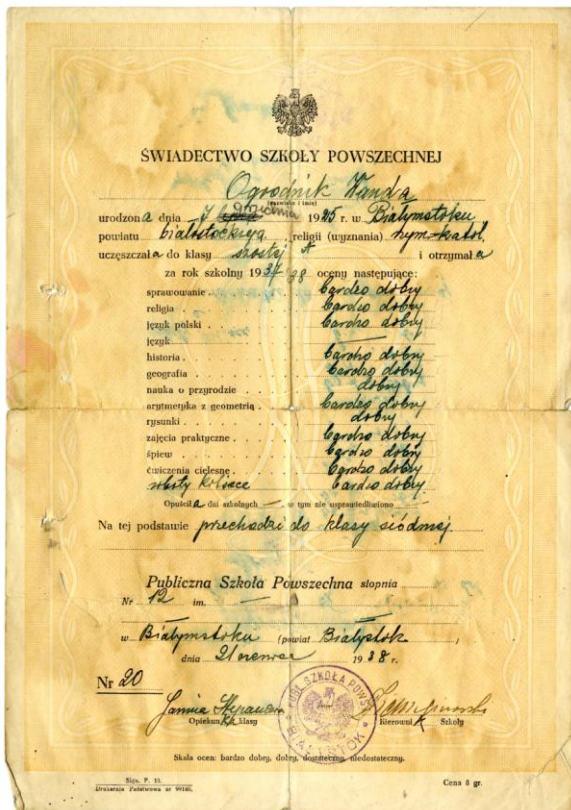 ŚWIADECTWO SZKOŁY POWSZECHNEJ
Ogrodnik Wanda
(nazwisko i imię)
urodzona dnia 7 grudnia 1925 r. w Białymstoku
powiatu białostockiego, religii (wyznania) rzym-katol,
uczęszczała do klasy szóstej A i otrzymała
za rok szkolny 1937/38 oceny następujące:
sprawowanie bardzo dobry
religia bardzo dobry
język polski bardzo dobry
język —
historia bardzo dobry
geografia bardzo dobry
nauka o przyrodzie dobry
arytmetyka z geometrią bardzo dobry
rysunki dobry
zajęcia praktyczne bardzo dobry
śpiew bardzo dobry
ćwiczenia cielesne bardzo dobry
roboty kobiece bardzo dobry
Opuściła dni szkolnych —, w tym nie usprawiedliwiono
Na tej podstawie przechodzi do klasy siódmej.
Publiczna Szkoła Powszechna stopnia
Nr 12 im. —
w Białymstoku (powiat Białystok,
dnia 21 czerwca 1938 r.
Nr 20
Janina
Opiekunka klasy Kierownik Szkoły
PUBL. SZKOŁA POWSZ. BIAŁYSTOK
Skala ocen: bardzo dobry, dobry, dostateczny, niedostateczny.
Cena 8 gr.
Drukarnia Państwowa nr